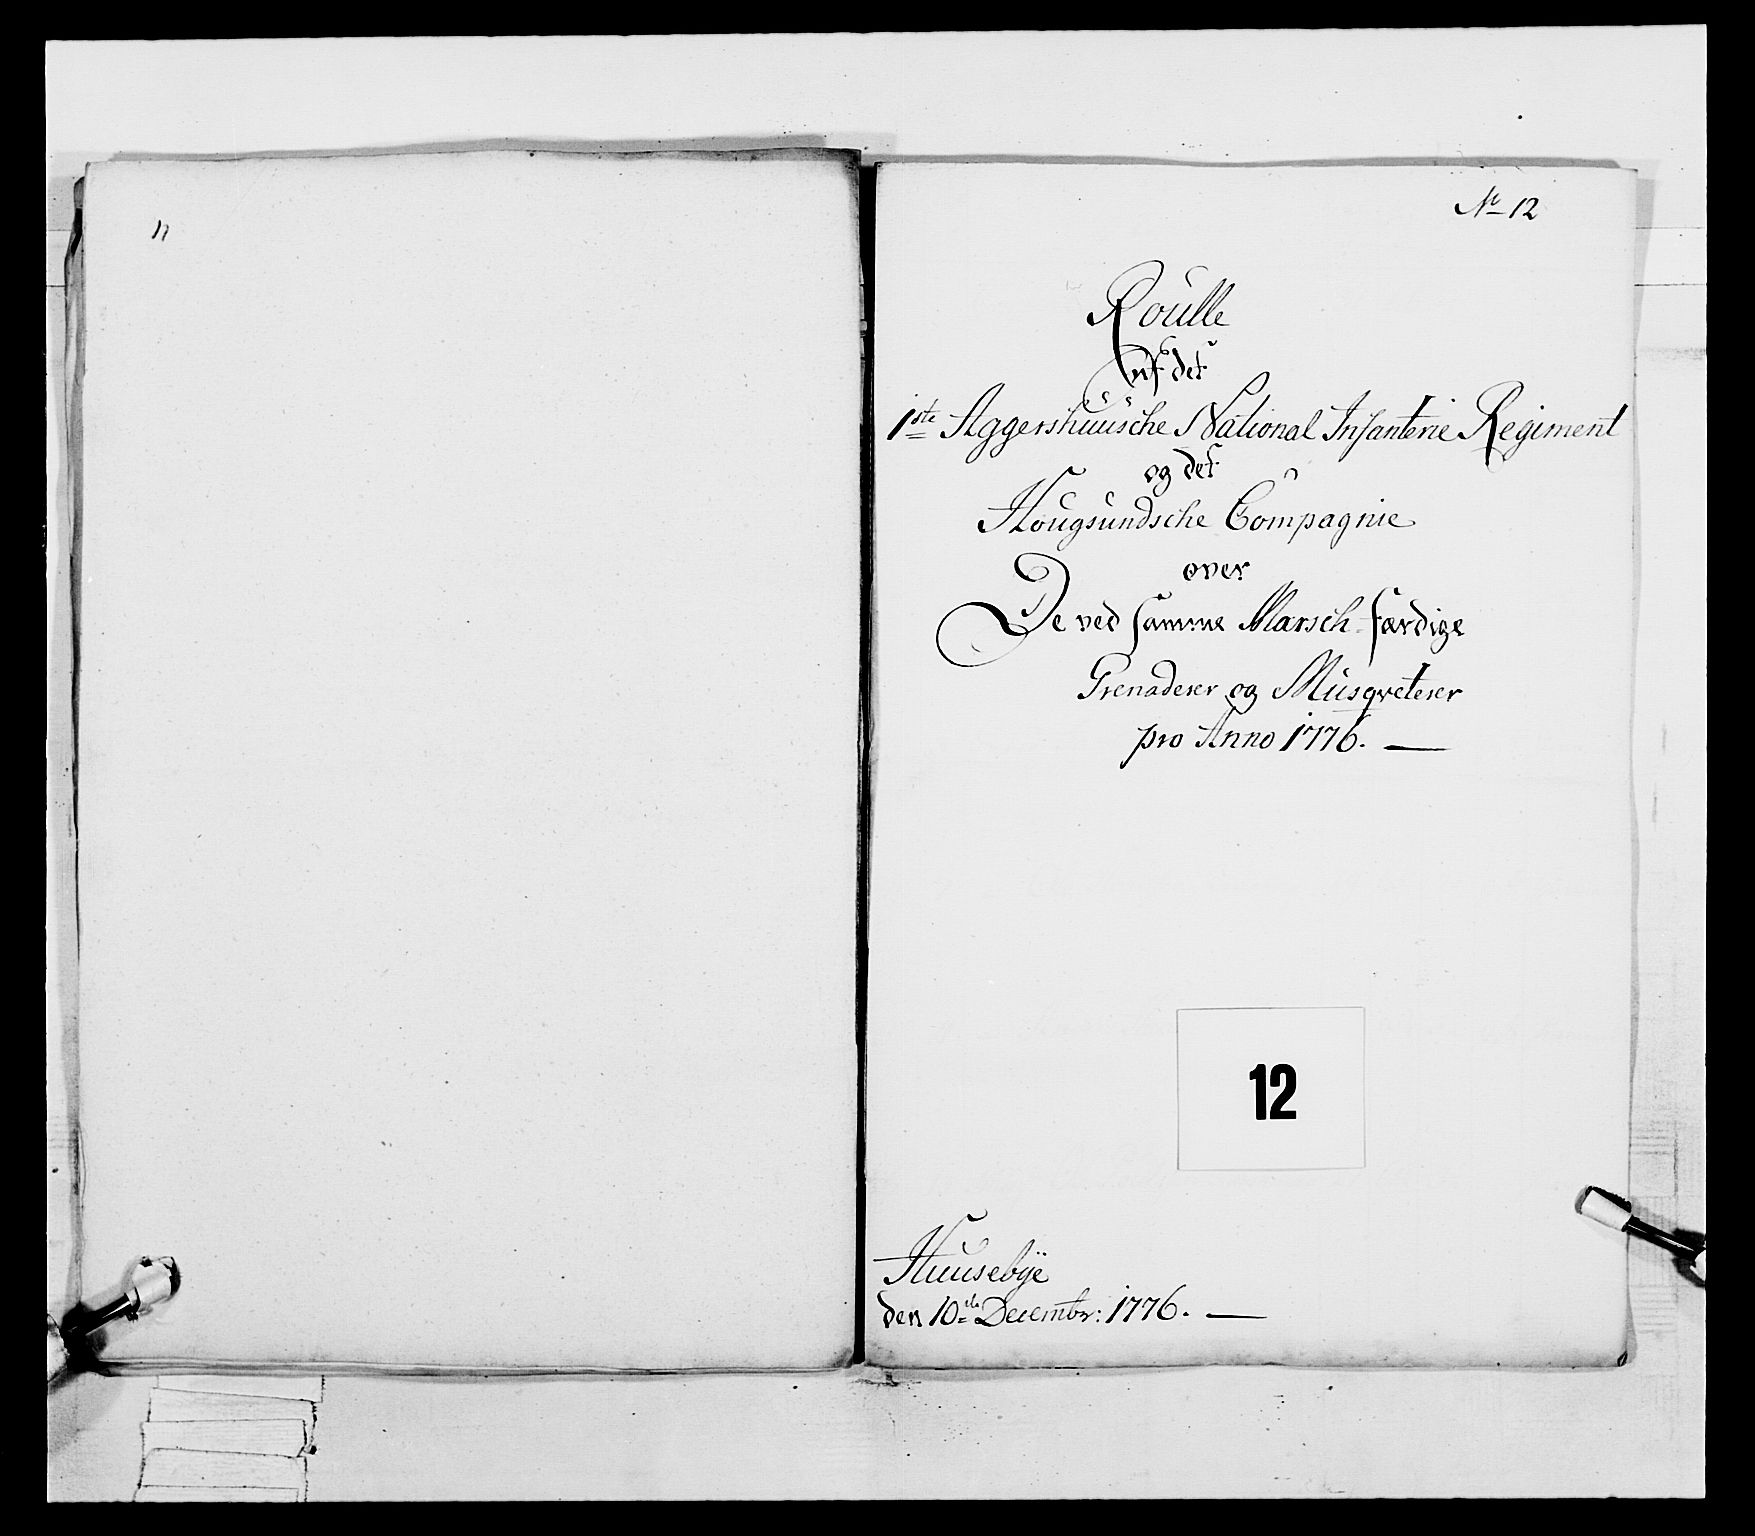 11
No 12
Roülle
af det
1ste Aggershuusche National Infanterie Regiment
og det
Hougsundsche Compagnie
over
De ved samme Marsch-færdige
Grenaderer og Musqveterer
pro Anno 1776.
12
Huusebÿe
den 10de Decembr: 1776.